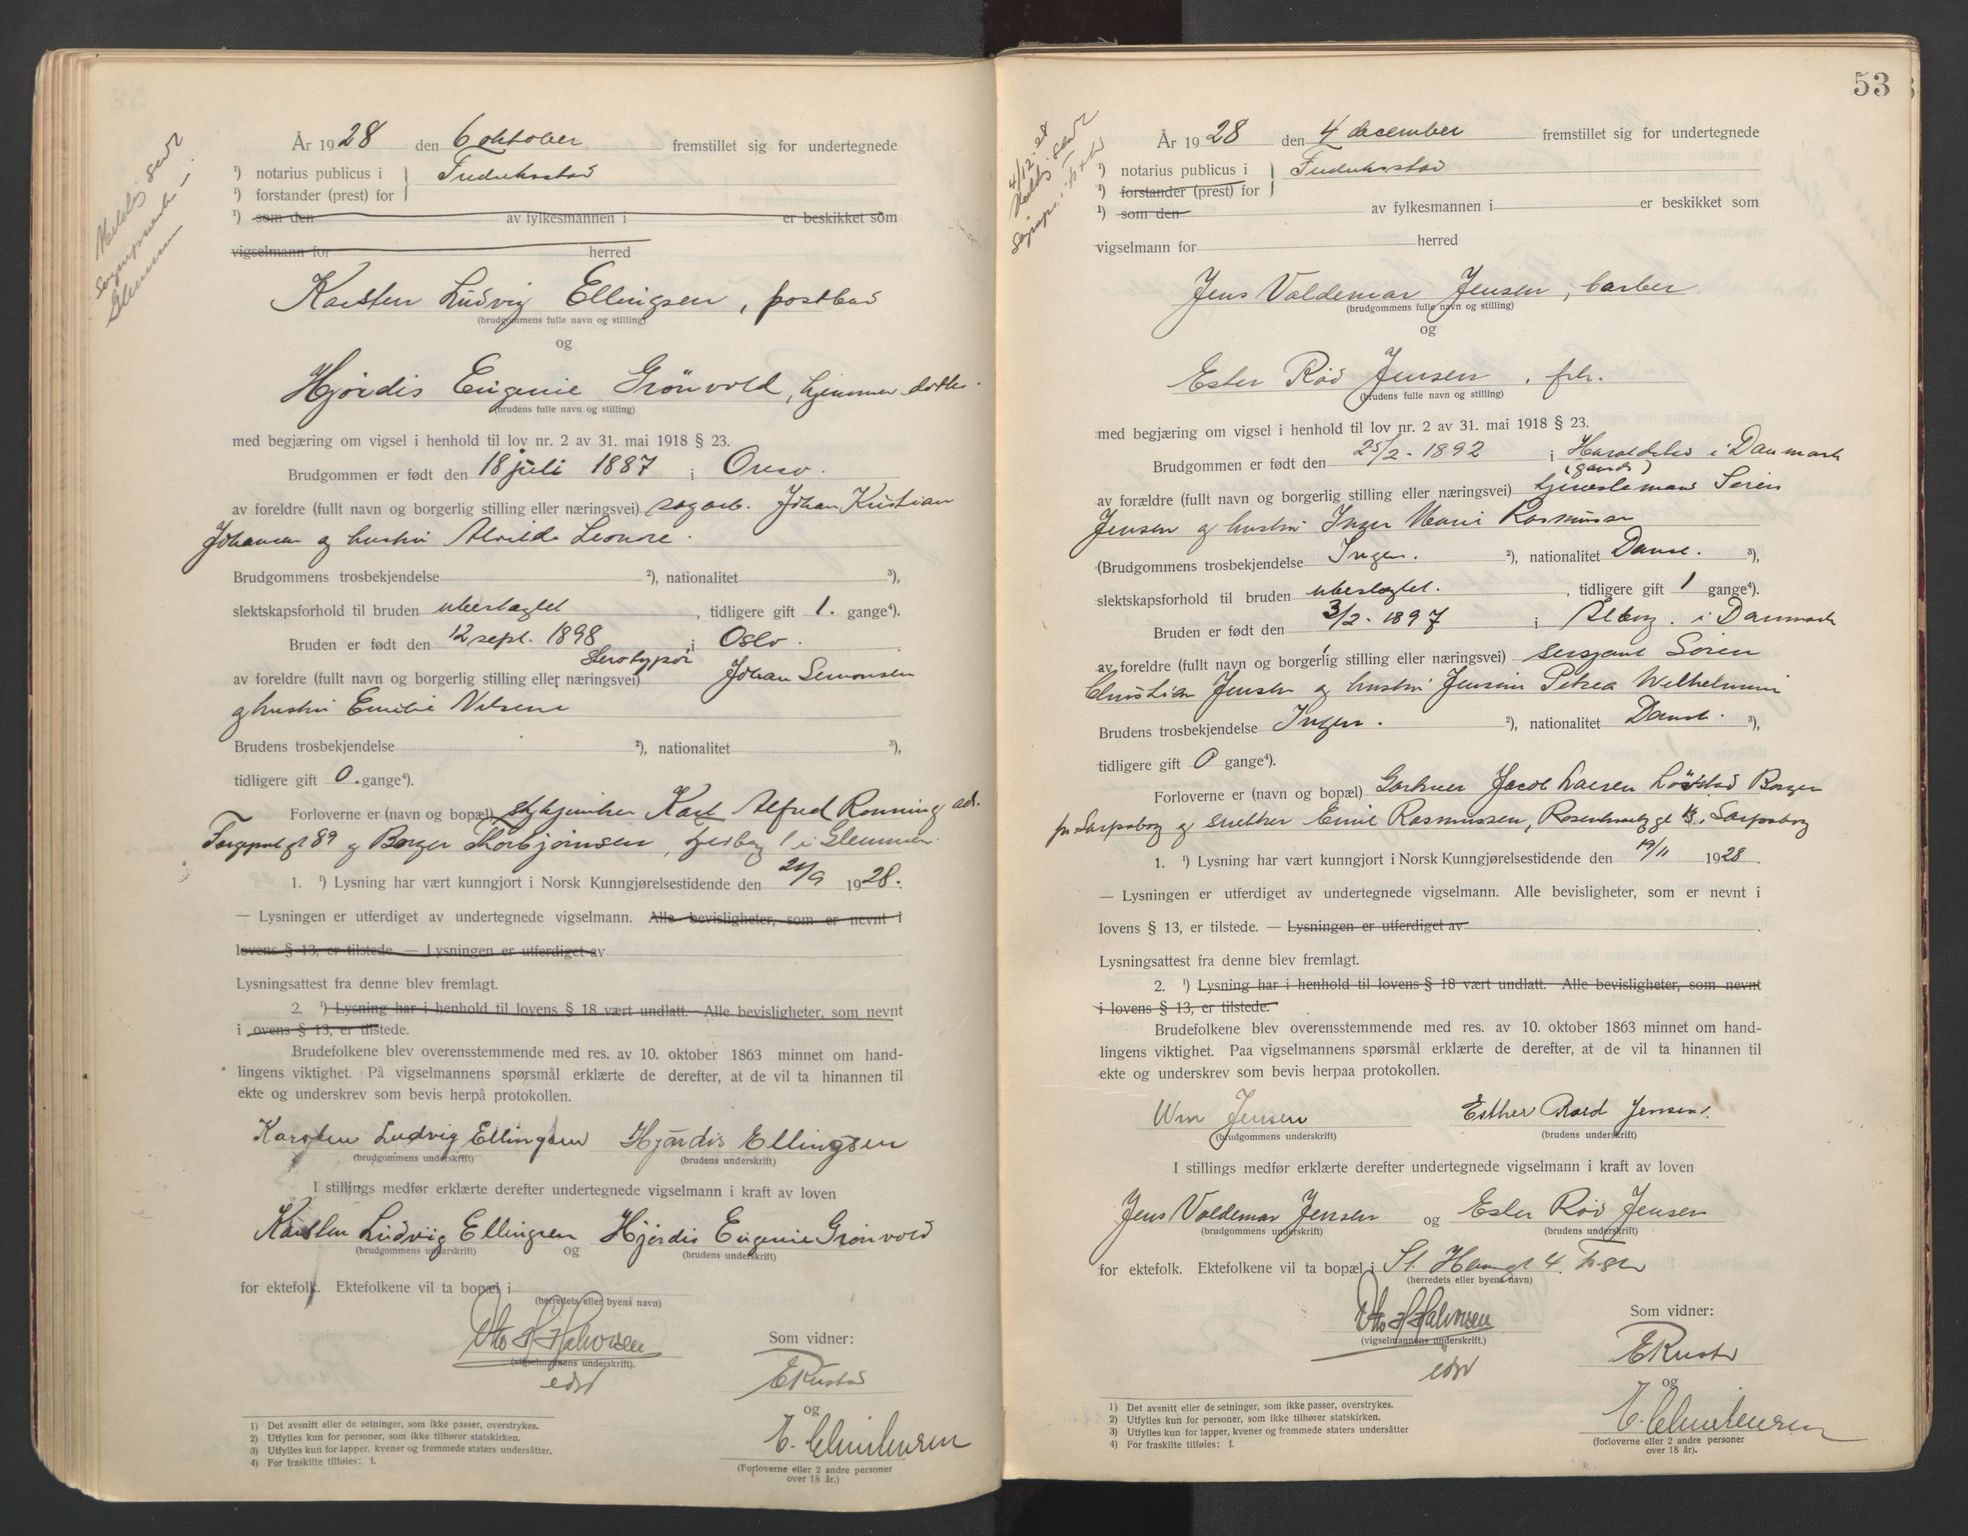 Meldg. sendt
Sogneprest i
Glemmen
År 1928 den 6 oktober fremstillet sig for undertegnede
¹) notarius publicus i } Fredriksstad
¹) forstander (prest) for
¹) som den av fylkesmannen i er beskikket som
vigselmann for herred
Karsten Ludvig Ellingsen, postbud
(brudgommens fulle navn og stilling)
og
Hjørdis Eugenie Grönvold, hjemmev. datter.
(brudens fulle navn og stilling)
med begjæring om vigsel i henhold til lov nr. 2 av 31. mai 1918 § 23.
Brudgommen er født den 18 juli 1887 i Onsø.
av foreldre (fullt navn og borgerlig stilling eller næringsvei) sagarb. Johan Kristian
Johansen og hustru Alvilde Leonore.
Brudgommens trosbekjendelse ²), nationalitet ³),
slektskapsforhold til bruden ubeslægtet, tidligere gift 1. gange⁴).
Bruden er født den 12 sept. 1898 i Oslo.
sterotypør
av foreldre (fullt navn og borgerlig stilling eller næringsvei) Johan Simonsen
og hustru Emilie Nilsen
Brudens trosbekjendelse ²), nationalitet ³),
tidligere gift 0. gange⁴).
Forloverne er (navn og bopæl) Karl Alfred Rønning adr.
89 og Borger Thorbjørnsen, i Glemmen
1. ¹) Lysning har vært kunngjort i Norsk Kunngjørelsestidende den 21/9 1928.
— Lysningen er utferdiget av undertegnede vigselmann. Alle bevisligheter, som er nevnt i
lovens § 13, er tilstede. — Lysningen er utferdiget av
Lysningsattest fra denne blev fremlagt.
2. ¹) Lysning har i henhold til lovens § 18 vært undlatt. Alle bevisligheter, som nevnt
i lovens § 13, er tilstede.
Brudefolkene blev overensstemmende med res. av 10. oktober 1863 minnet om hand-
lingens viktighet. På vigselmannens spørsmål erklærte de derefter, at de vil ta hinannen til
ekte og underskrev som bevis herpå protokollen.
Karsten Ludvig Ellingsen Hjørdis Ellingsen
(brudgommens underskrift) (brudens underskrift)
I stillings medfør erklærte derefter undertegnede vigselmann i kraft av loven
Karsten Ludvig Ellingsen og Hjørdis Eugenie Grönvold
(brudgommens underskrift) (brudens underskrift)
for ektefolk. Ektefolkene vil ta bopæl i
(herredets eller byens navn)
Otto H Halvorsen
(vigselmannens underskrift).
edsv
Som vidner:
E Rustad
og
E. Christensen
(Forloverne eller 2 andre personer
over 18 år.)
1) Det avsnitt eller de setninger, som ikke passer, overstrykes.
2) Utfylles kun for personer, som ikke tilhører statskirken.
3) Utfylles kun for lapper, kvener og fremmede staters undersåtter.
4) For fraskilte tilføies: f.
53
4/12-28
Meldg. sendt
Sognepr. i
År 1928 den 4 december fremstillet sig for undertegnede
¹) notarius publicus i } Fredriksstad
¹) forstander (prest) for
¹) som den av fylkesmannen i er beskikket som
vigselmann for herred
Jens Valdemar Jensen, barber.
(brudgommens fulle navn og stilling)
og
Ester Röd Jensen, frk.
(brudens fulle navn og stilling)
med begjæring om vigsel i henhold til lov nr. 2 av 31. mai 1918 § 23.
Brudgommen er født den 25/2-1892 i Haraldslev i Danmark
av forældre (fullt navn og borgerlig stilling eller næringsvei) tjenestemand Sören
Jensen og hustru Inger Marie Rasmussen
(Brudgommens trosbekjendelse Ingen. ²), nationalitet Dansk. ³),
slektskapsforhold til bruden ubeslegtet., tidligere gift 1 gange⁴).
Bruden er født den 3/2-1897 i Ålborg. i Danmark
av foreldre (fullt navn og borgerlig stilling eller næringsvei) sersjant Sören
Christian Jensen og hustru Jensine Petrea Wilhelmine
Brudens trosbekjendelse Ingen. ²), nationalitet Dansk. ³),
tidligere gift 0 gange⁴).
Forloverne er (navn og bopæl) Gartner Jacob Larsen Borgen
pr. Sarpsborg og snekker Emil Rasmussen, Sarpsborg
1. ¹) Lysning har vært kunngjort i Norsk Kunngjørelsestidende den 19/11 1928.
— Lysningen er utferdiget av undertegnede vigselmann. Alle bevisligheter, som er nevnt i
lovens § 13, er tilstede. — Lysningen er utferdiget av
Lysningsattest fra denne blev fremlagt.
2. ¹) Lysning har i henhold til lovens § 18 vært undlatt. Alle bevisligheter, som nevnt
i lovens § 13, er tilstede.
Brudefolkene blev overensstemmende med res. av 10. oktober 1863 minnet om hand-
lingens viktighet. Paa vigselmannens spørsmål erklærte de derefter, at de vil ta hinannen til
ekte og underskrev som bevis herpaa protokollen.
Wm Jensen Esther Roed Jensen.
(brudgommens underskrift) (brudens underskrift)
I stillings medfør erklærte derefter undertegnede vigselmann i kraft av loven
Jens Valdemar Jensen og Ester Röd Jensen
(brudgommens underskrift) (brudens underskrift)
for ektefolk. Ektefolkene vil ta bopæl i St. Hansgt 4.
(herredets eller byens navn)
Otto H Halvorsen
(vigselmannens underskrift.)
edsv
Som vidner:
E Rustad
og
E. Christensen
(forloverne eller 2 andre personer
over 18 år).
1) Det avsnitt eller de setninger, som ikke passer, overstrykes.
2) Utfylles kun for personer, som ikke tilhører statskirken.
3) Utfylles kun for lapper, kvener og fremmede staters undersåtter
4) For fraskilte tilføies: f.